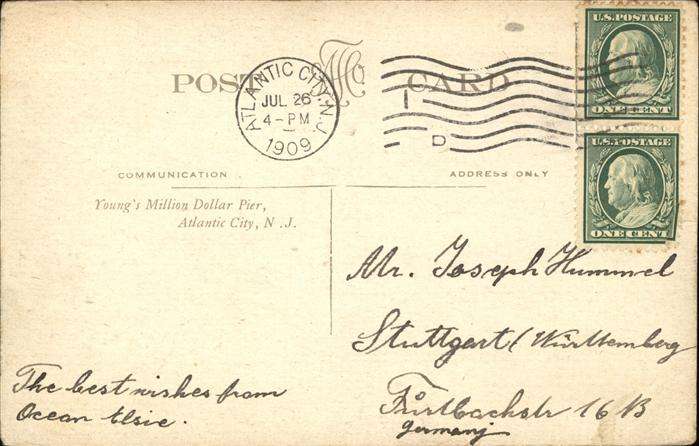 POST CARD
ATLANTIC CITY, N.J.
JUL 26
4-PM
1909
D
U.S. POSTAGE
ONE CENT
U.S. POSTAGE
ONE CENT
COMMUNICATION
ADDRESS ONLY
Young's Million Dollar Pier,
Atlantic City, N.J.
Mr. Joseph Hummel
Stuttgart (Württemberg
Fürtbachstr 16 B
Germany
The best wishes from
Ocean Elsie.